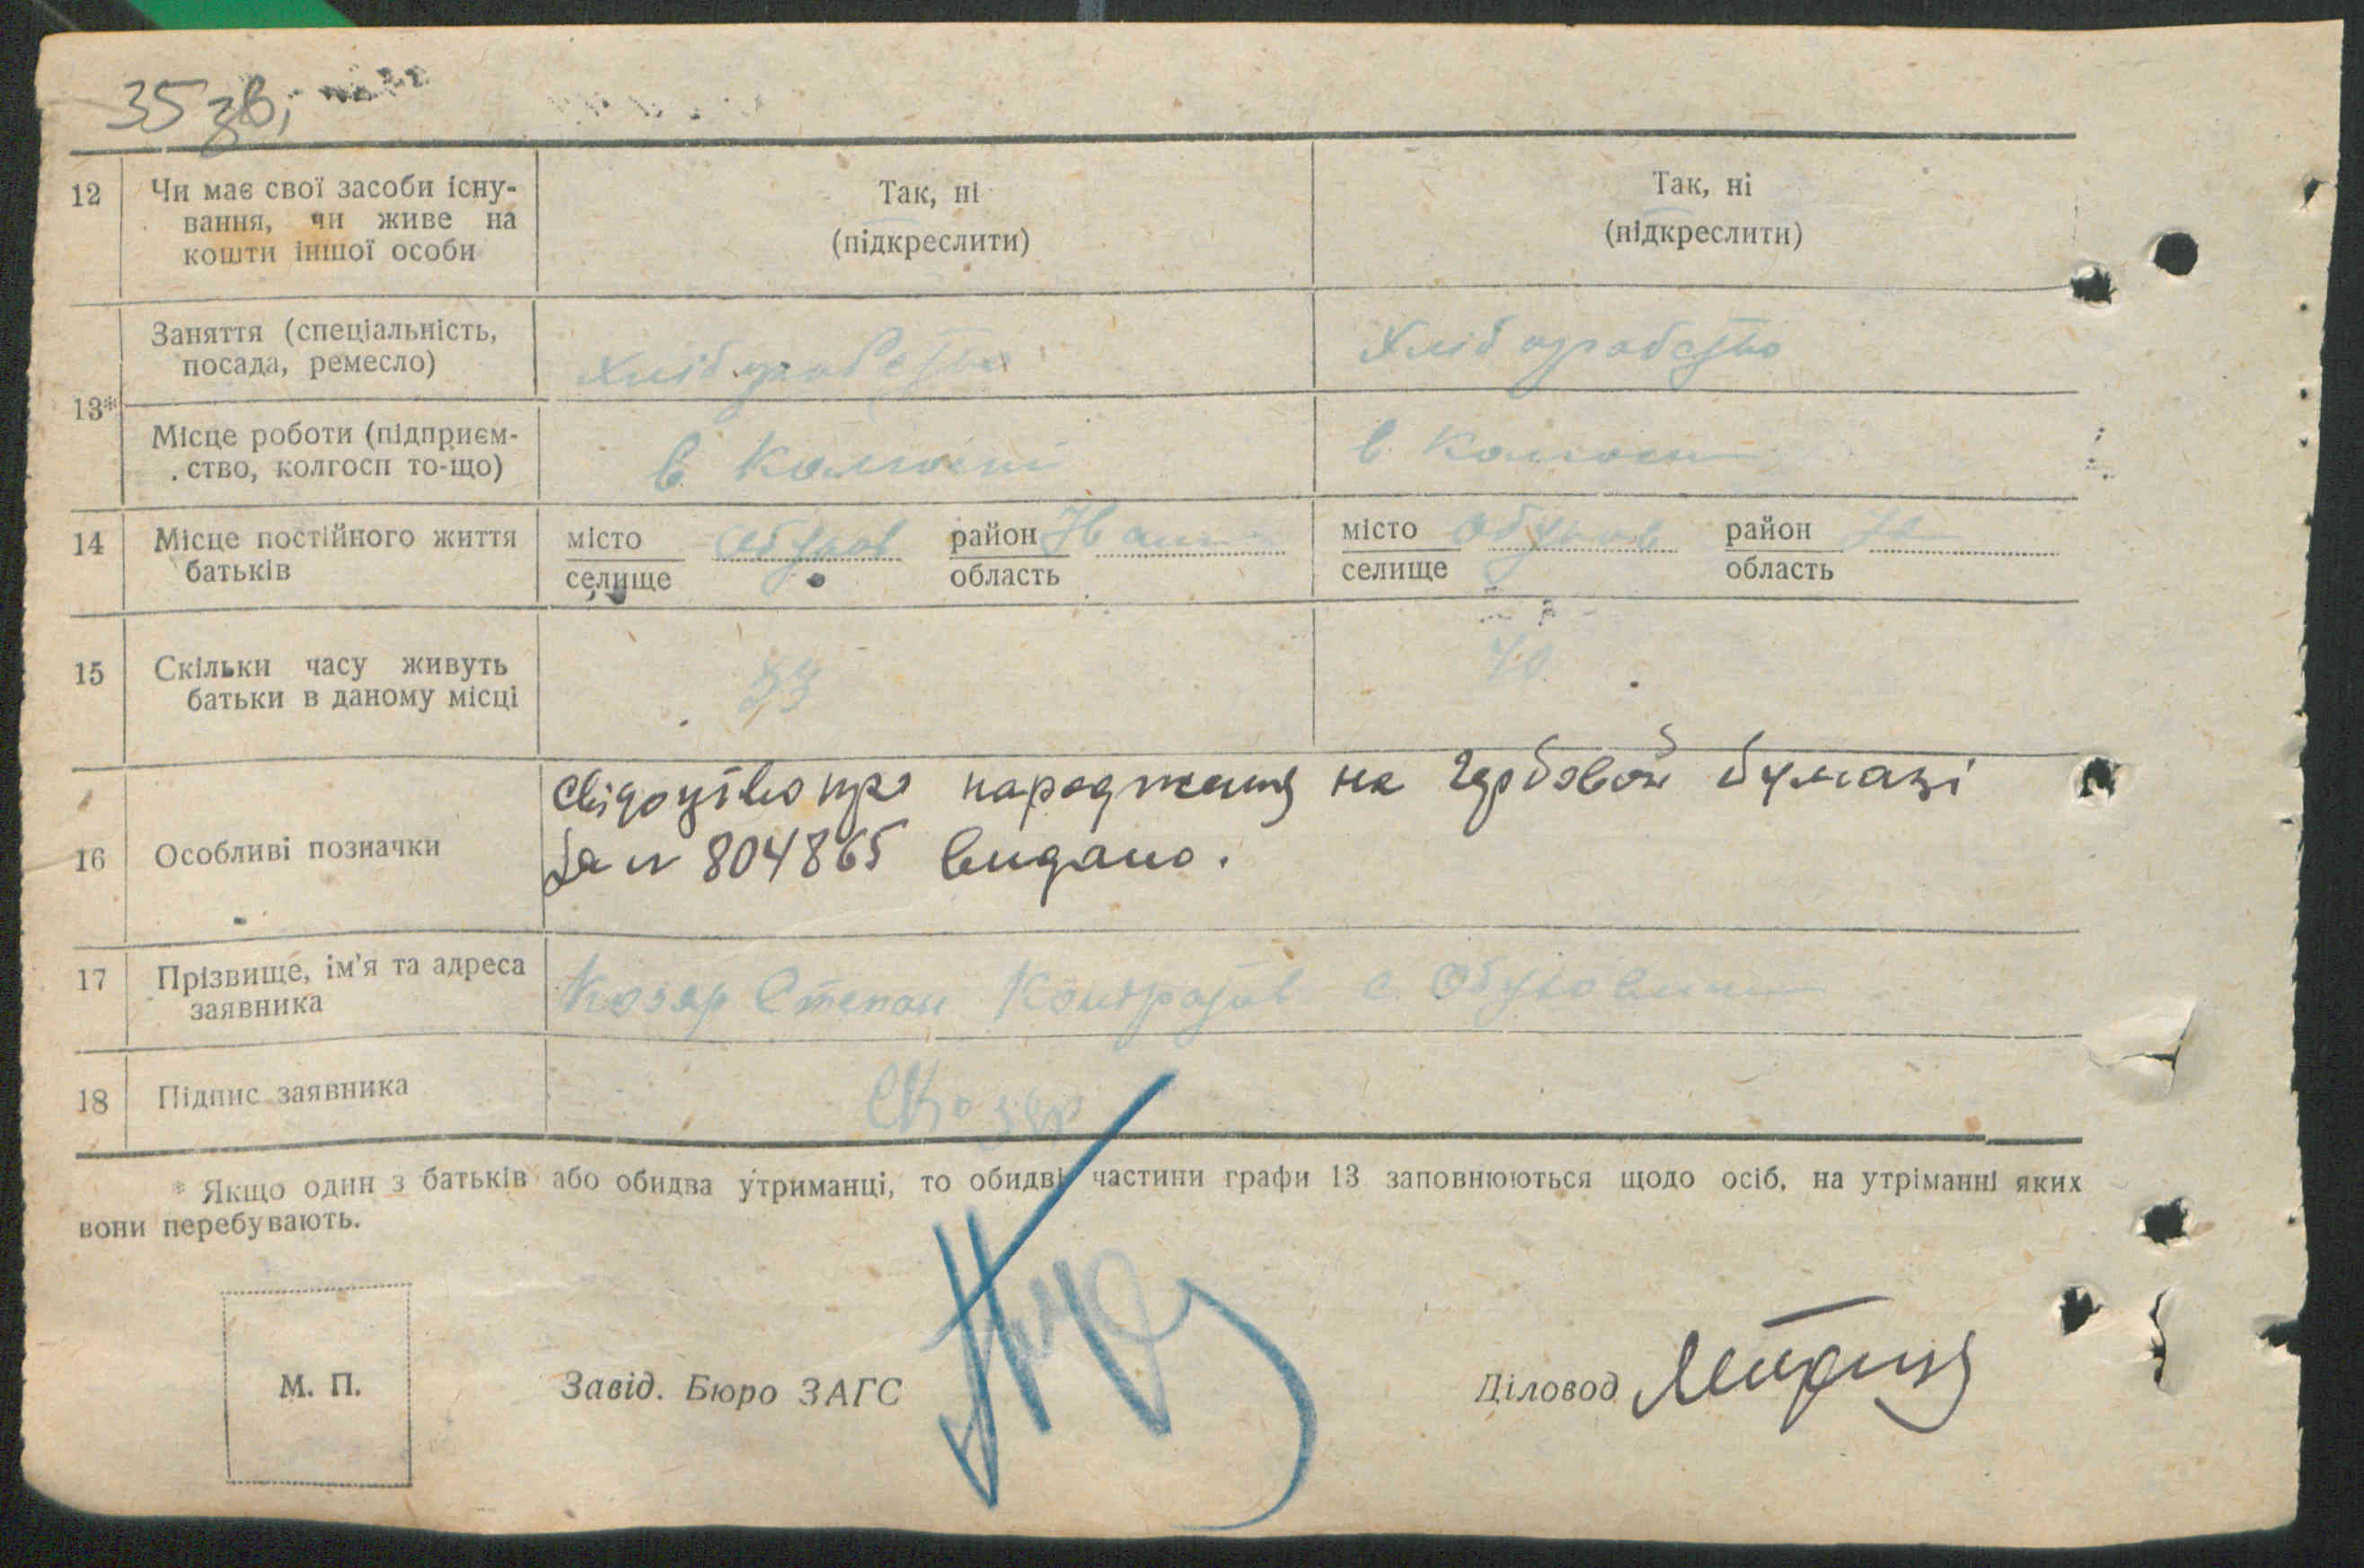 35 зв,
12 Чи має свої засоби існу- Так, ні Так, ні
вання, чи живе на (підкреслити) (підкреслити)
кошти іншої особи
Заняття (спеціальність, Хлібаробство Хлібаробство
посада, ремесло)
13*
Місце роботи (підприєм- в в
ство, колгосп то-що)
14 Місце постійного життя місто район місто район
батьків селище область селище область
15 Скільки часу живуть 33 40
батьки в даному місці
свідоцтво про народження на гербовой бумазі
16 Особливі позначки
за № 804865 видано.
17 Прізвище, ім'я та адреса Козяр Степан с
заявника
18 Підпис заявника СКозяр
* Якщо один з батьків або обидва утриманці, то обидві частини графи 13 заповнюються щодо осіб, на утріманні яких
вони перебувають.
М. П. Завід. Бюро ЗАГС Діловод